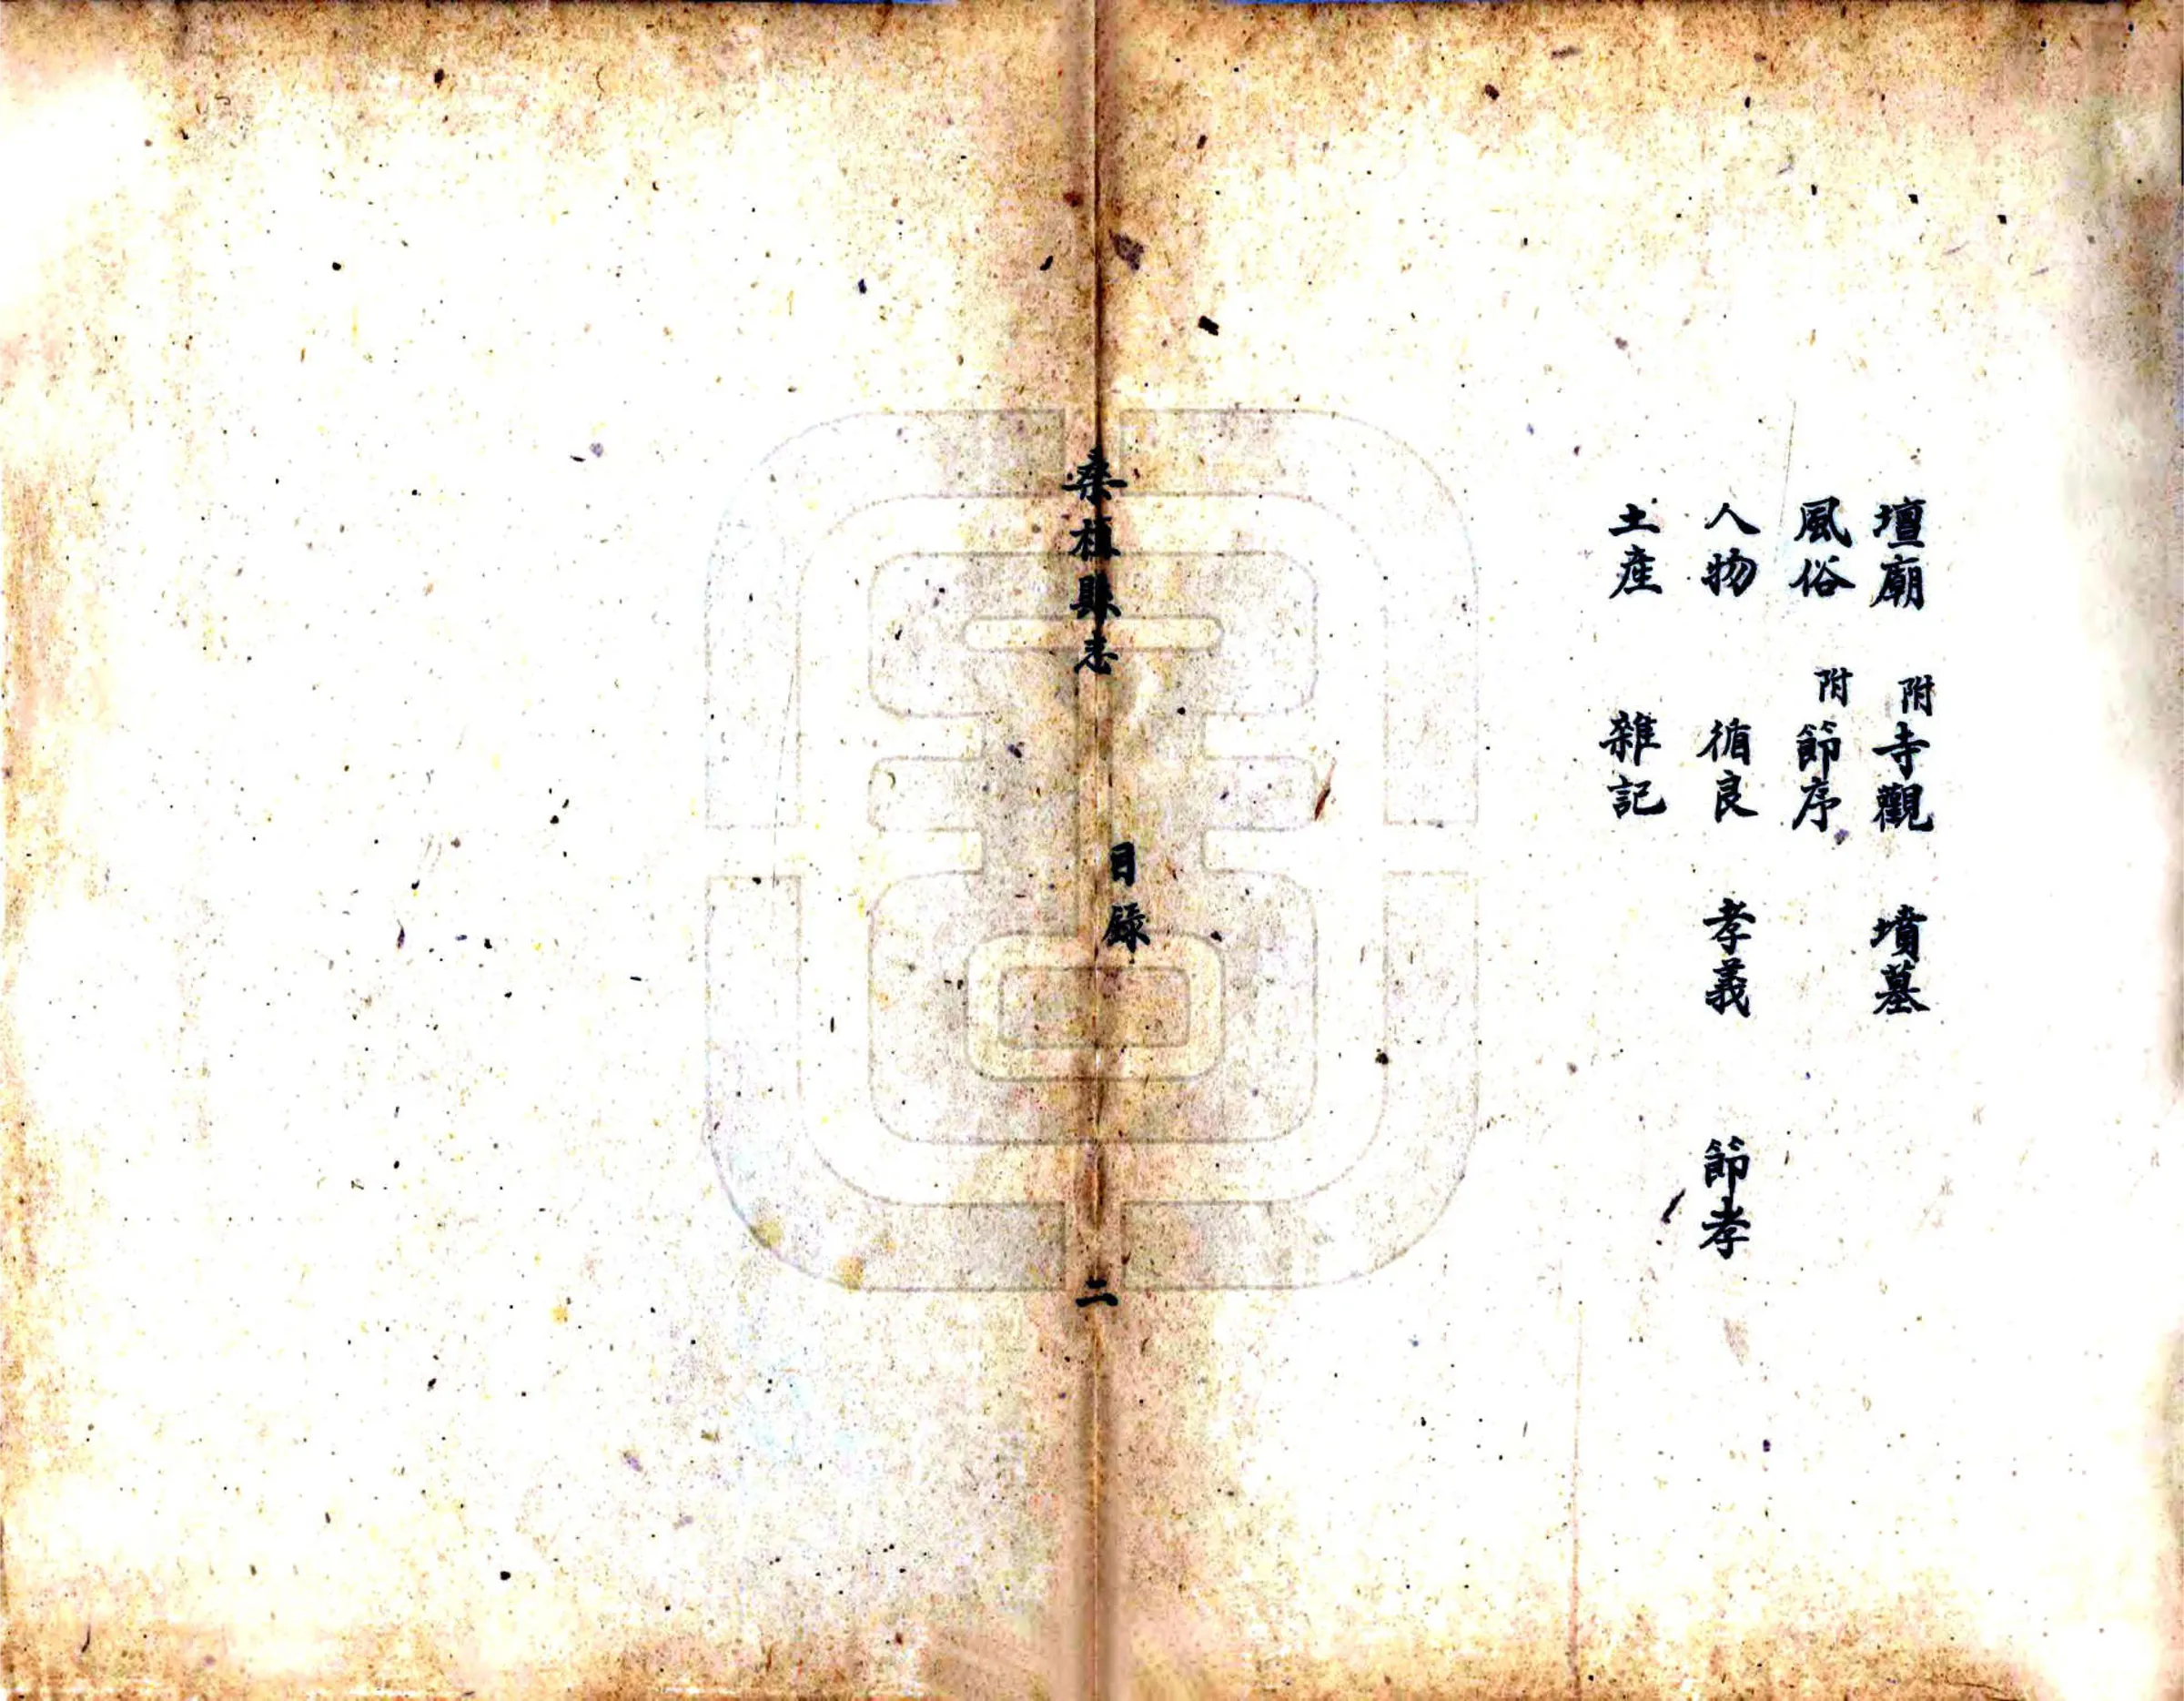 壇廟 附寺觀 墳墓
風俗 附節序
人物 循良 孝義 節孝
土產 雜記
桑植縣志 目錄 二